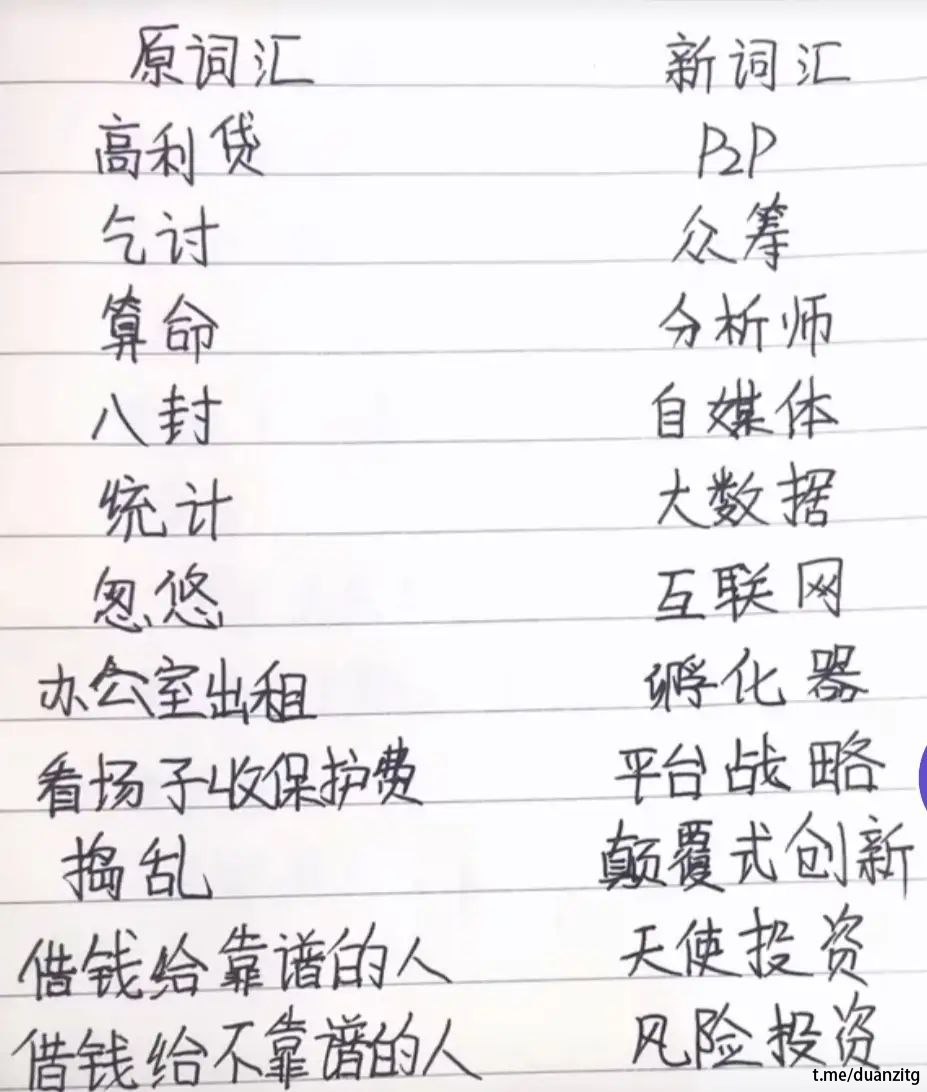 原词汇 新词汇
高利贷 P2P
乞讨 众筹
算命 分析师
八封 自媒体
统计 大数据
忽悠 互联网
办公室出租 孵化器
看场子收保护费 平台战略
捣乱 颠覆式创新
借钱给靠谱的人 天使投资
借钱给不靠谱的人 风险投资
t.me/duanzitg